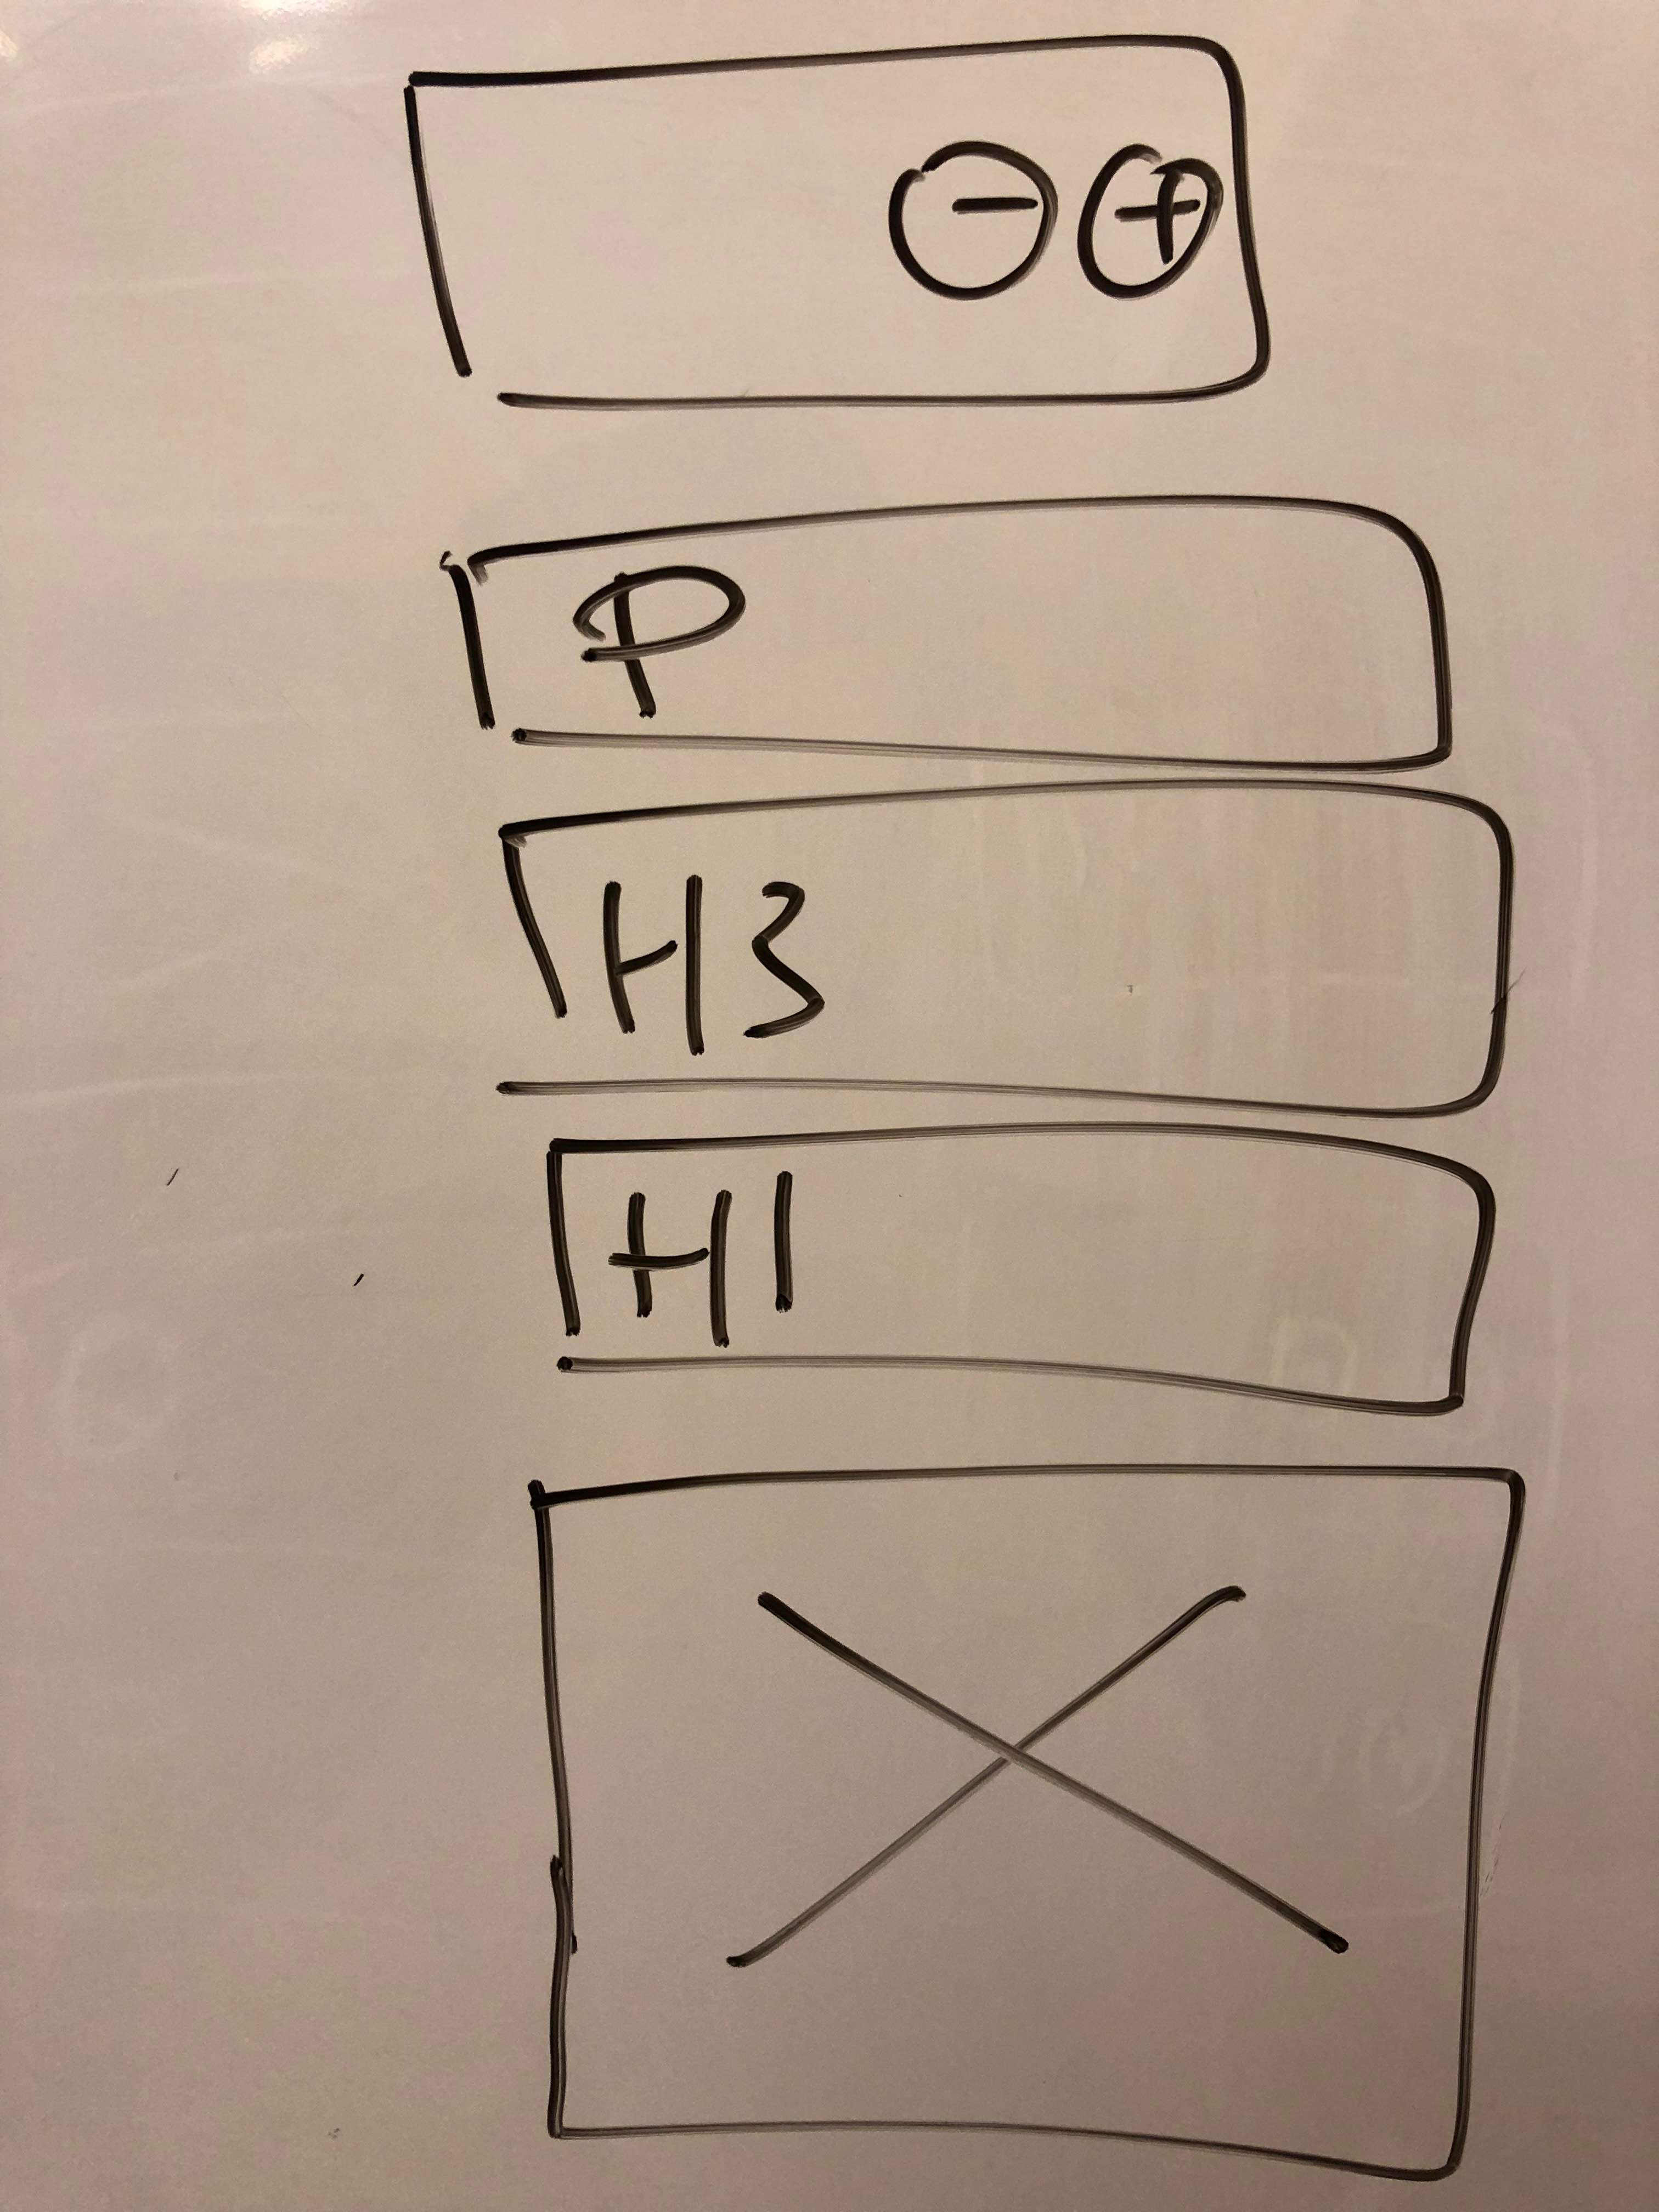 - +
P
H3
H1